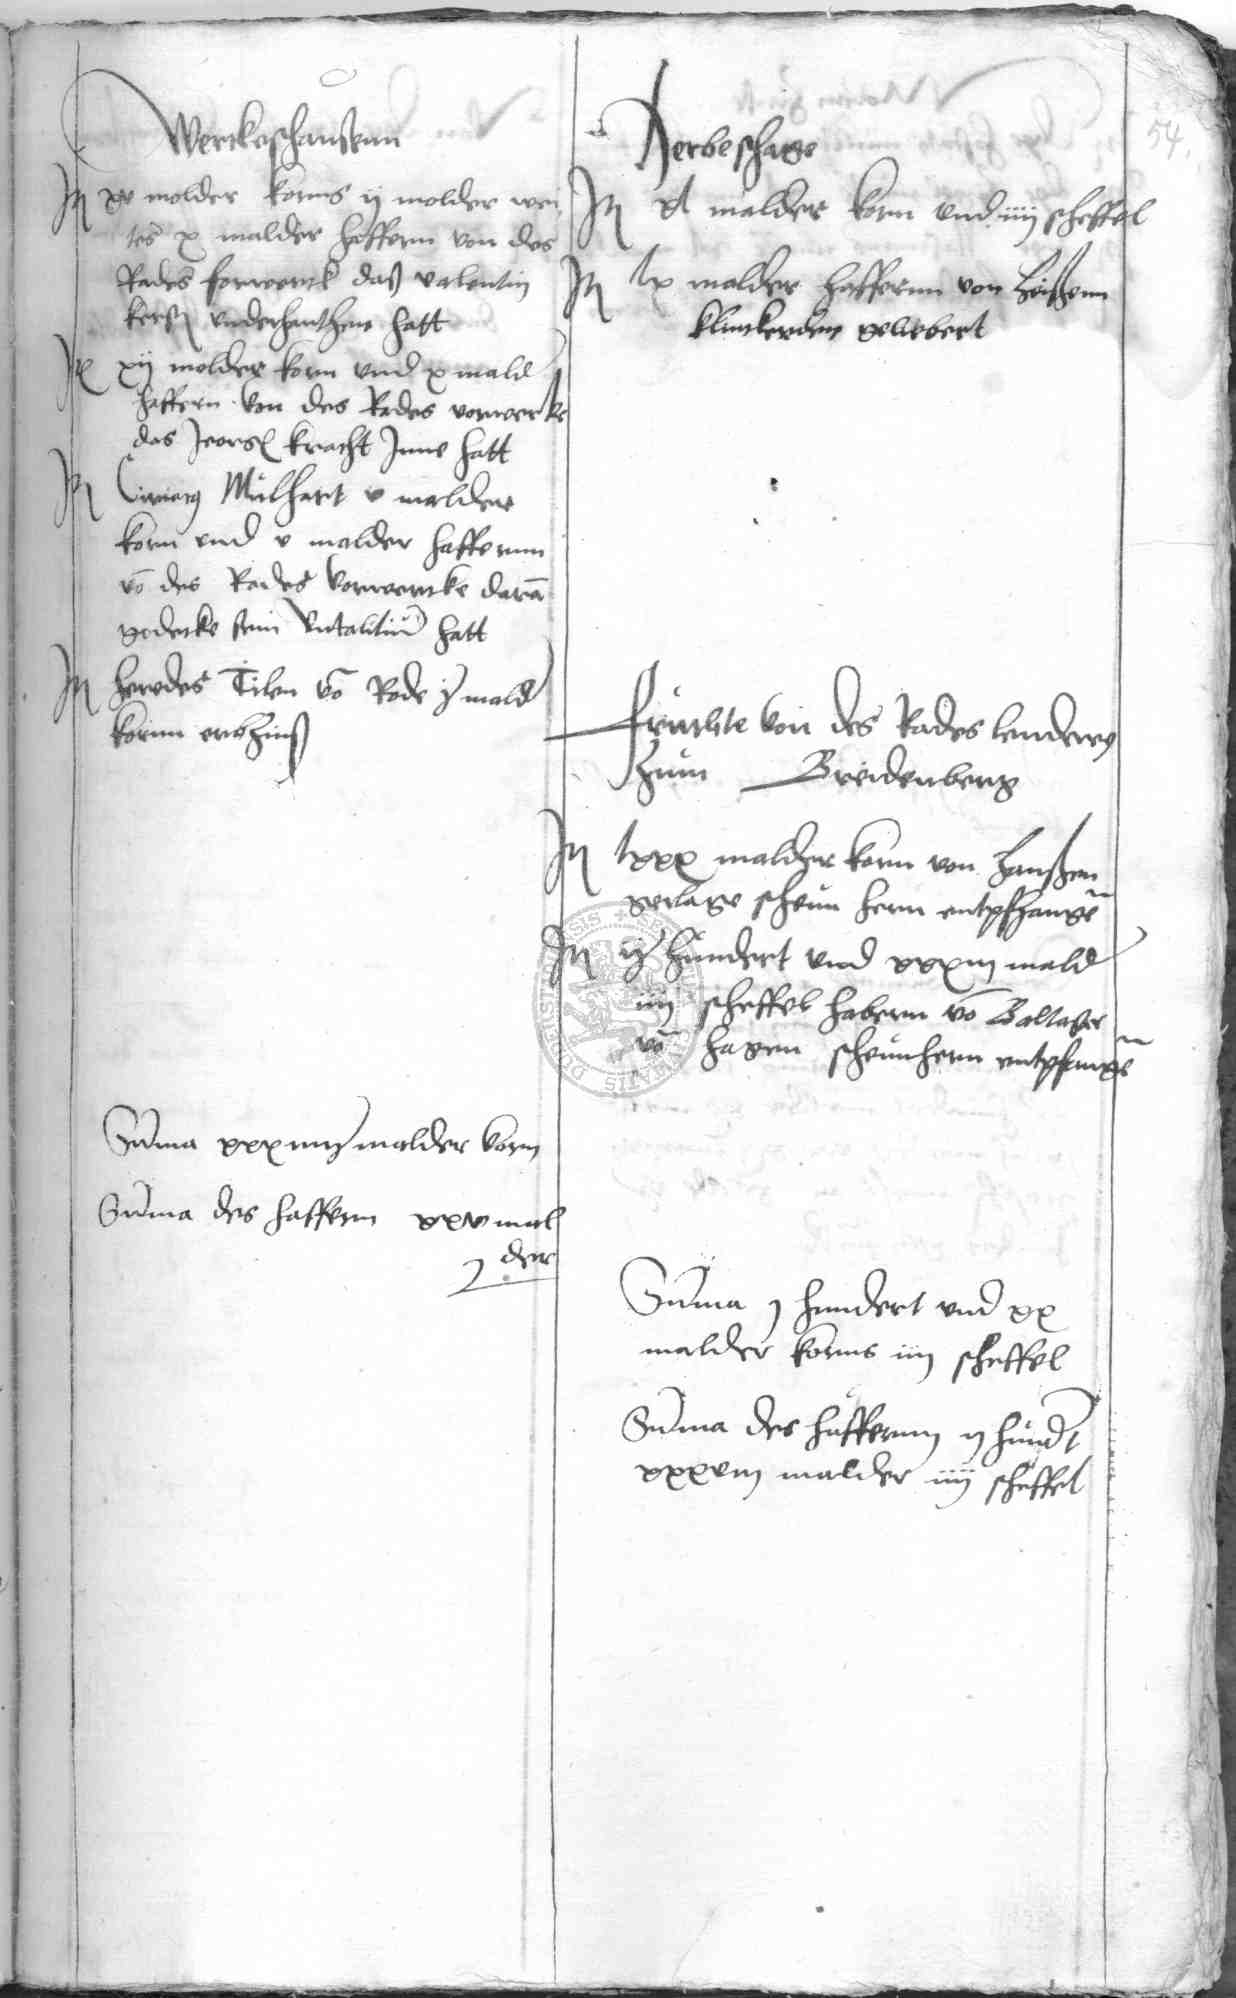 54.
Werckeshausenn
It xv molder korns ij molder wei
tes x malder haffern von des
Rades forwerck daß valentin
kersten underhanthen hatt
It xij molder korn und x mald
haffern von des Rades vorwerke
das Jeorg kracht Inne hatt
It Ciriacus Mülhart v maldere
korn und v malder haffernn
vō des Rades Vorwercke darā
godecke sein vitalitiū hatt
It herodes Tilen vō Rode ij mald
kornn erbzinß
Sūma xxxiiij malder korn
Sūma des haffern xxv mal
der
Herbeshage
It xl malder korn und iiij scheffel
It lx malder haffernn von Heißenn
klinckerdem geliebert
Früchte von des Rades lenderey
zum Breidenberg
It lxxx malder korn von Hanßen
gerlage scheun hern entpfhangē
It ij hundert und xxxiii mald
iiij scheffel habern vō Baltaßer
vō hagen scheunhern entpfangē
Sūma j hundert und xx
malder korns iiij scheffel
Sūma des haffernn ij hundert
xxxviii malder iiij scheffel